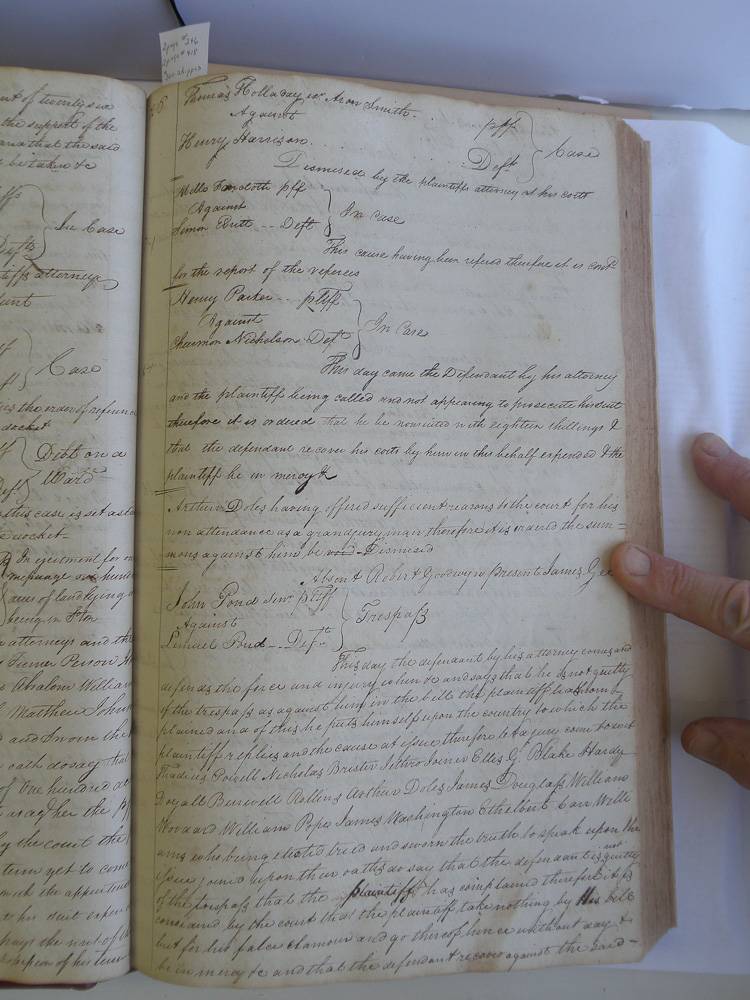 2 page # 346
2 page # 418
nt of twenty six
the support of the
and that the said
be taken &c
In Case
Deft
tiffs attorney
Case
Debt on a
Ward
this case is set as to
docket
In ejectment for on
messuage six hund
acres of land lying &
being in
attorneys and th
Turner Person H
Absalom William
Matthew John
and sworn the
oath do say that
of One hundred
by the court the
term yet to com
Thomas Holladay exr Aron Smith . pff
Against
Henry Harrison . . . . Deft
Case
Dismissed by the plaintiffs attorney at his costs
Wells Fancloth pff
Against
Simon Britt -- Deft
In Case
This cause having been refered therefore it is contd
for the report of the referees
Henry Parker -- ptiff
Against
Nicholson Deft
In Case
This day came the Defendant by his attorney
and the plaintiff being called and not appearing to prosecute his suit
therefore it is ordered that he be nonsuited with eighteen shillings &
that the defendant recover his costs by him in this behalf expended & the
plaintiff be in mercy &
Arthur Doles having offered sufficient reasons to the court for his
non attendance as a grandjuryman therefore it is ordered the sum=
mons against him be Dismised
Absent Robert Goodwyn Present James Gee
John Pond Senr ptiff
Against
Lemuel Pond -- Deft
Trespass
This day the defendant by his attorney comes and
defends the force and injury when &c and says that he is not guilty
of the trespass as against him in the bill the plaintiff hath com
plained and of this he puts himself upon the country to which the
plaintiff replies and the cause at issue therefore let a jury come to wit
Thadius Powell Nicholas Brister Jethro Joiner Elles G Blake Hardy
Doyall Burwell Rollins Arthur Doles James Douglass William
Woodard William Pope James Washington Ethelbert Carr Willi
ams who being elected tried and sworn the truth to speak upon the
Issue joined upon their oaths do say that the defendant is not guilty
of the trespass that the plaintiff has complained therefore it is
concidered by the court that the plaintiff take nothing by his bill
but for his false clamour and go thereof hence without day &
be in mercy &c and that the defendant recover against the said